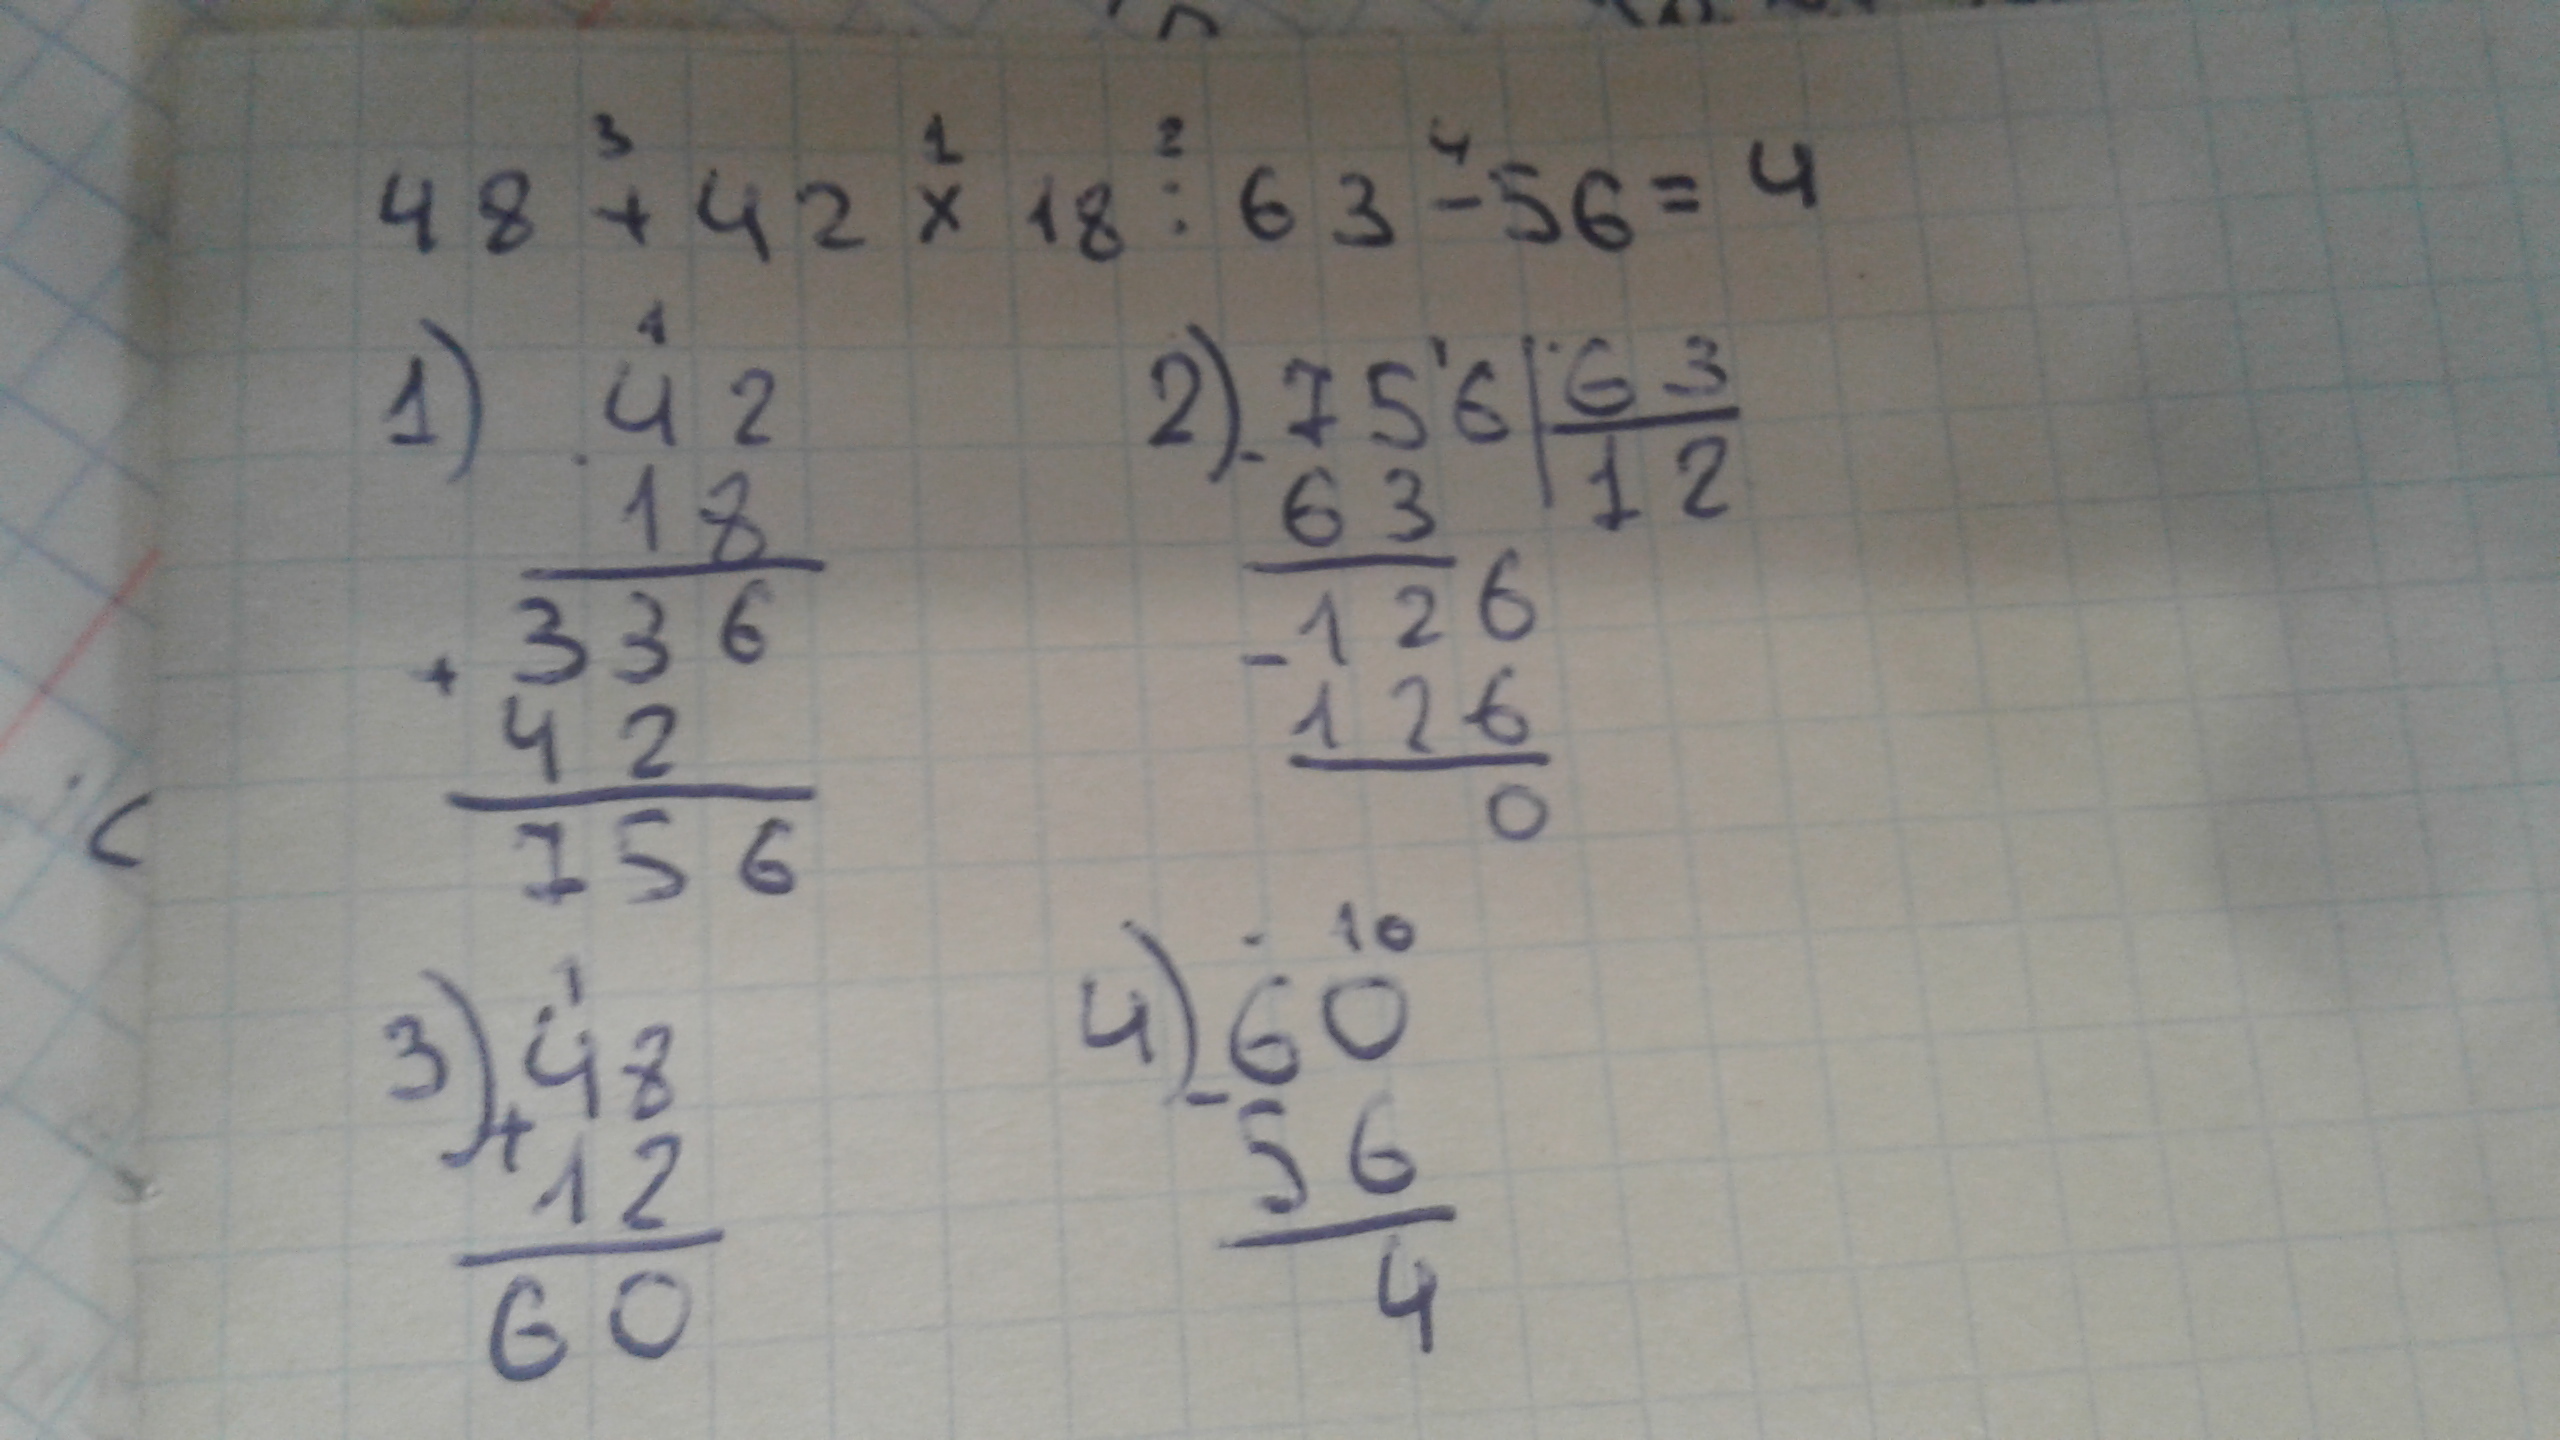 3 1 2 4
48 + 42 × 18 : 63 - 56 = 4
1)
1
42
18
336
+
42
756
2) - 75'6 | 63
63 12
126
-
126
0
3)
1
48
+
12
60
4)
10
60
-
56
4